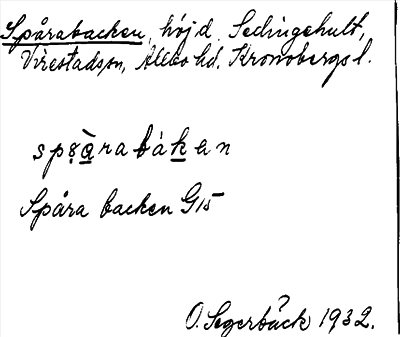 Spårabacken, höjd. Sedingehult,
Virestads sn, Allbo hd. Kronobergs l.
Spåra backen G15
O. Segerbäck 1932.